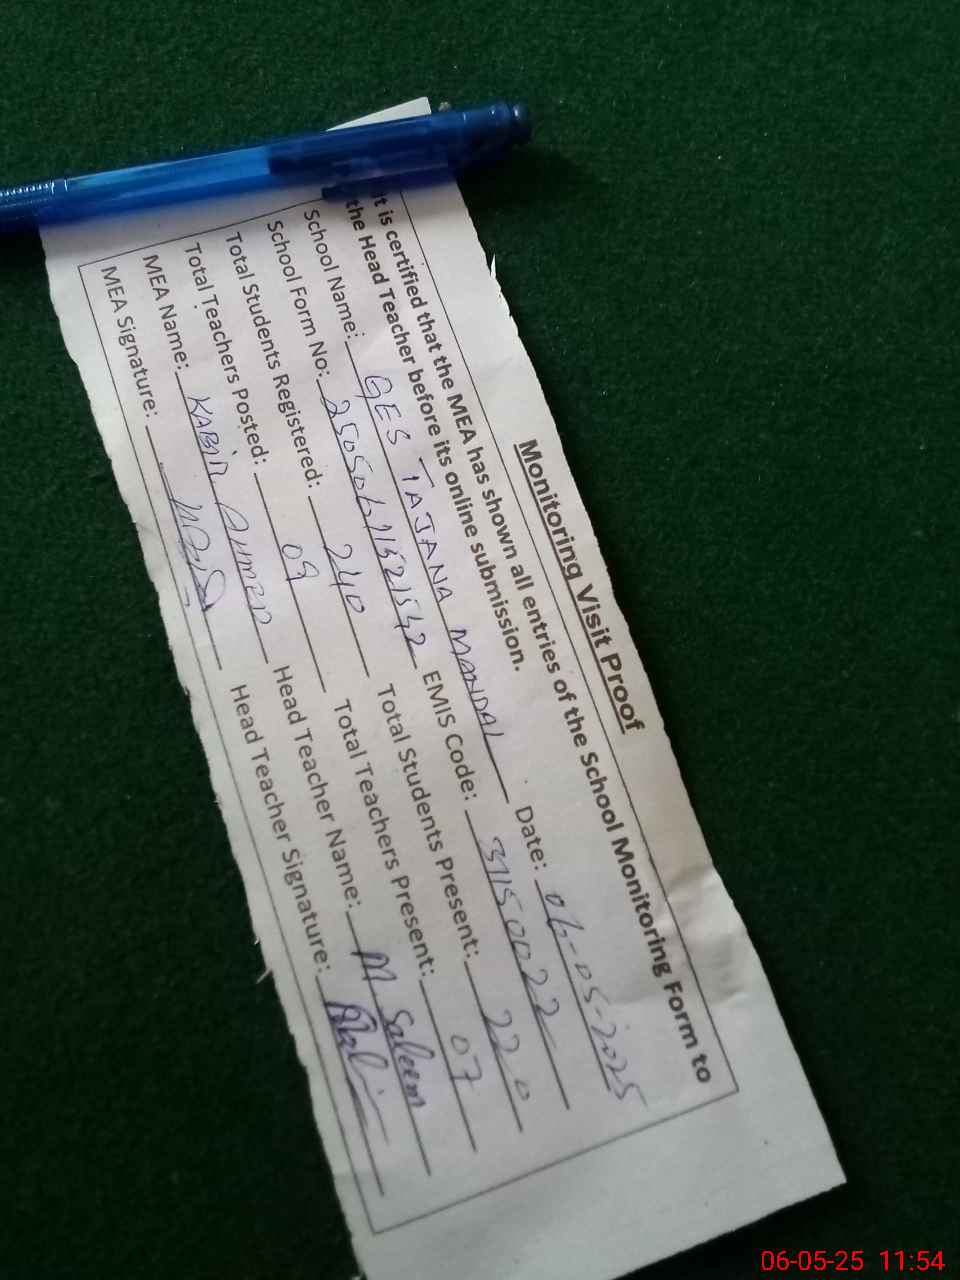 Monitoring Visit Proof
It is certified that the MEA has shown all entries of the School Monitoring Form to
the Head Teacher before its online submission.
Date: 06-05-2025
School Name: GES TAJANA MANDAL
School Form No: 250506111521542 EMIS Code: 31150022
Total Students Registered: 240 Total Students Present: 220
Total Teachers Posted: 09 Total Teachers Present: 07
MEA Name: KABIR AHMED Head Teacher Name: M Saleem
MEA Signature: Head Teacher Signature:
06-05-25 11:54